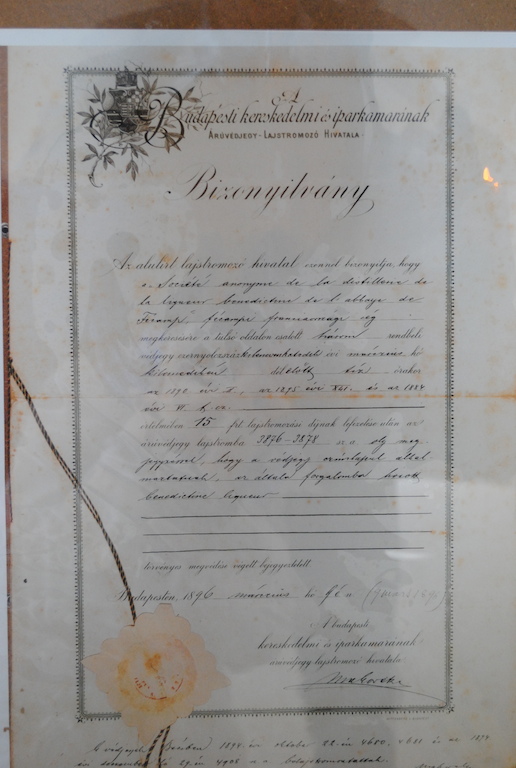 A
Budapesti kereskedelmi és iparkamarának
ÁRÚVÉDJEGY-LAJSTROMOZÓ HIVATALA.
Bizonyitvány
Az alulirt lajstromozó hivatal ezennel bizonyitja, hogy
a „Société anonyme de la distillerie de
la liqueur Benedictine de l'abbaye de
Fécamp" fécampi franciaországi cég
megkeresésére a túlso oldalon csatolt három rendbeli
védjegy ezernyolczszázkilenczvenhatodik évi márczius hó
délelőtt órakor
az 1890 évi II., az 1895 évi XLI. és az 1884
évi
értelmében 15 frt lajstromozási díjnak lefizetése után az
árúvédjegy lajstromba 3876-3878 sz. a. oly meg
jegyzéssel, hogy a védjegy czimlapul által
az általa forgalomba hozott
benedictine liqueur
törvényes megvédése végett bejegyeztetett.
Budapesten, 1896 márczius hó
A budapesti
kereskedelmi és iparkamarának
árúvédjegy-lajstromozó hivatala
1894 évi október 22-én 4680, 4681 és az 1894
29-én 4908